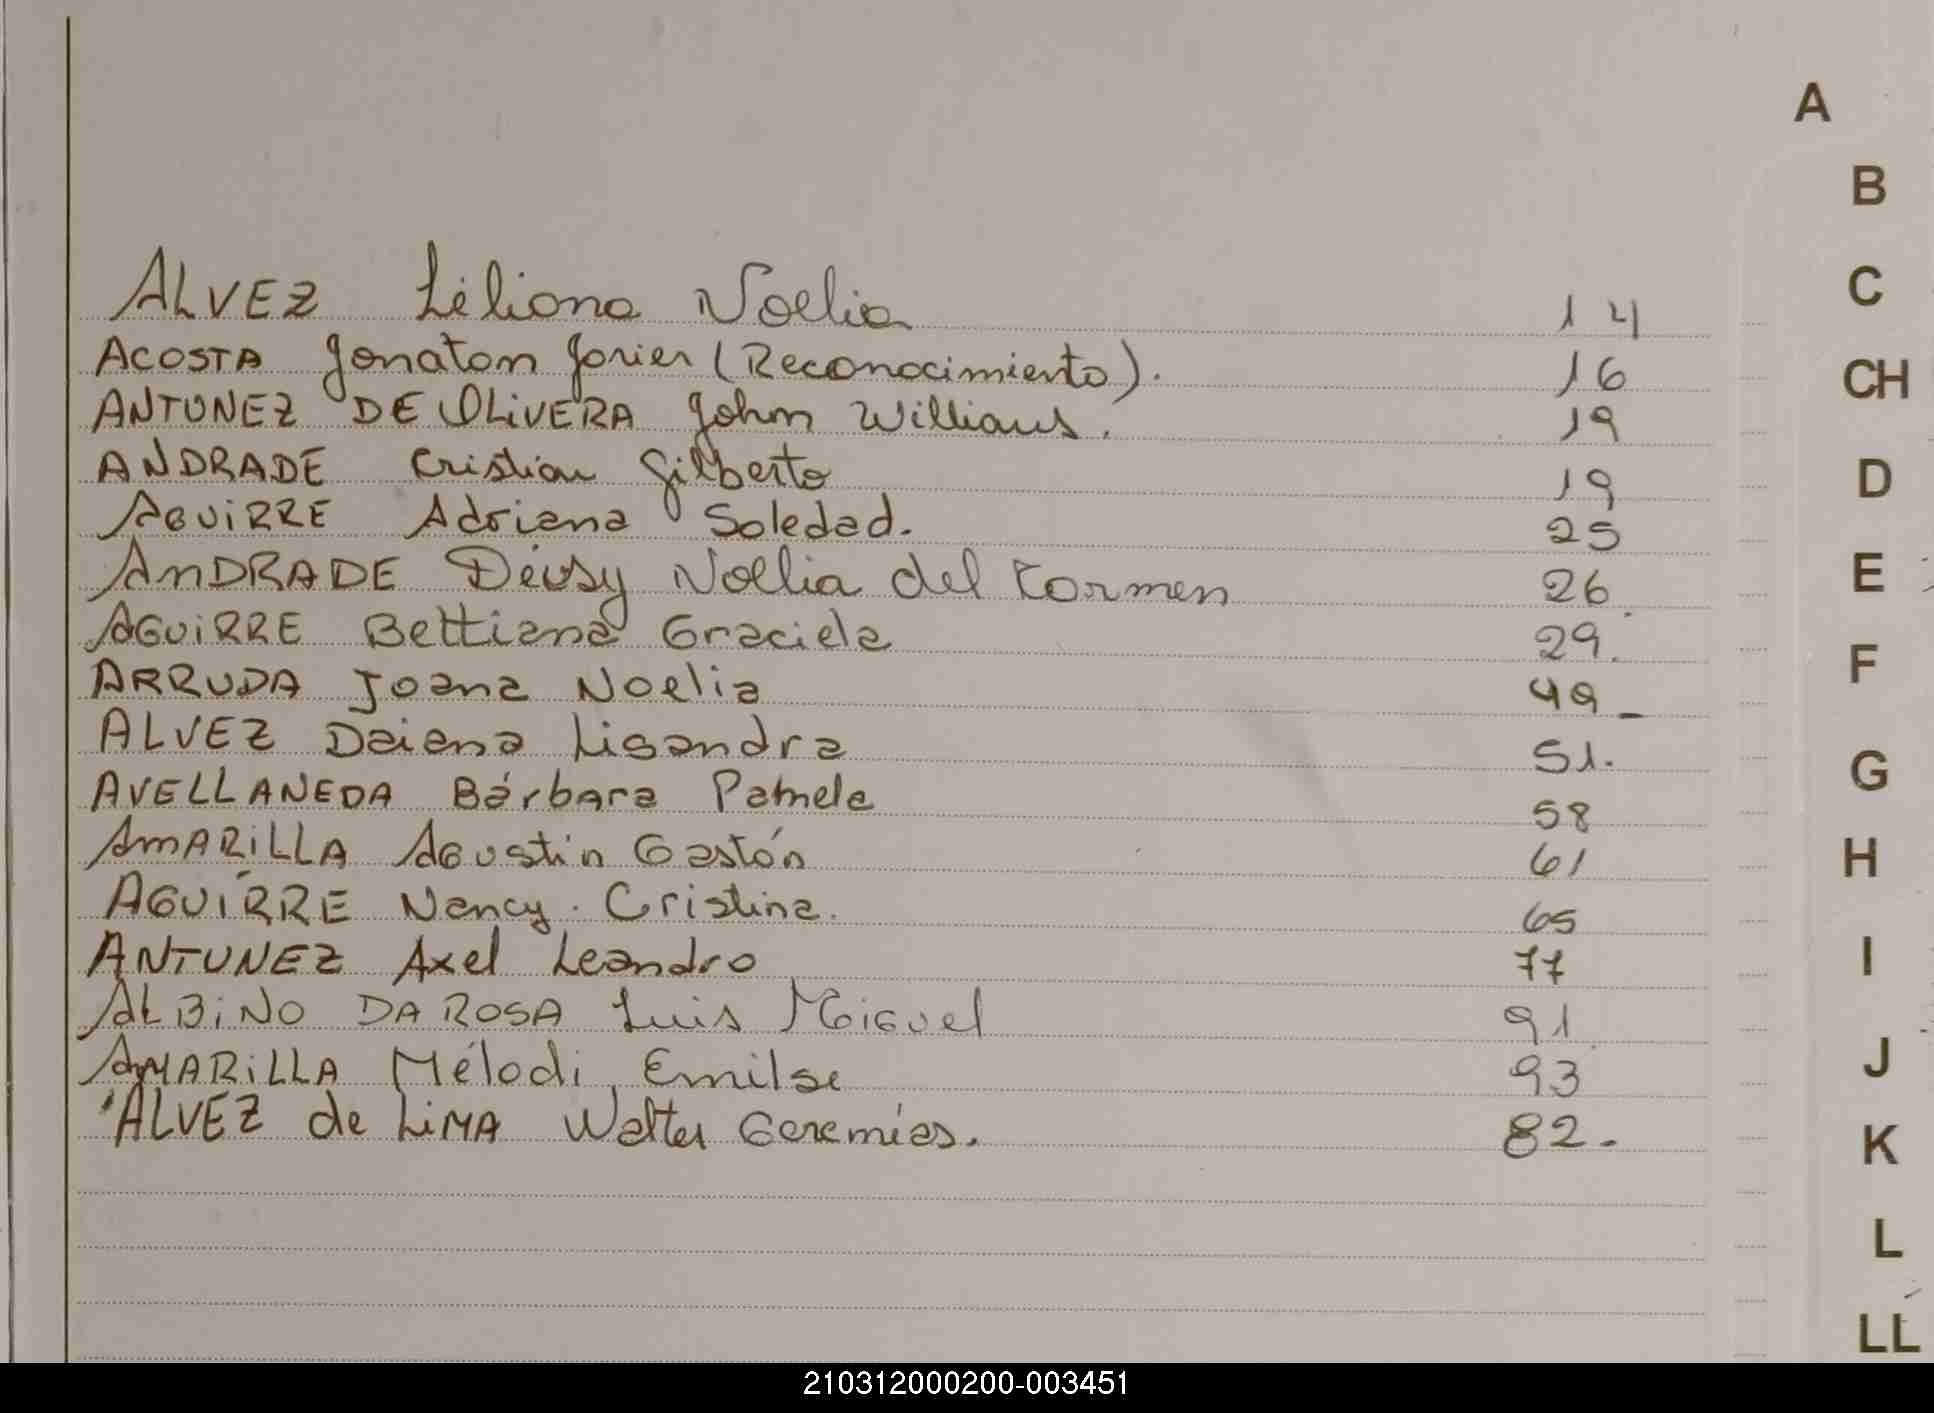 A
B
C
ALVEZ Liliana Noelia 14
ACOSTA Jonatan Javier (Reconocimiento). 16
CH
ANTUNEZ DE OLIVERA John Willians. 19
ANDRADE Cristian Gilberto 19
D
AGUIRRE Adriana Soledad. 25
ANDRADE Deusy Noelia del Carmen 26
E
AGUIRRE Bettiana Graciela 29.
F
ARRUDA Joana Noelia 49_
ALVEZ Daiana Lisandra 51.
G
AVELLANEDA Bárbara Pamela 58
AMARILLA Agustin Gastón 61
H
AGUIRRE Nancy. Cristina. 65
ANTUNEZ Axel Leandro 77
I
ALBINO DA ROSA Luis Miguel 91
AMARILLA Mélodi Emilse 93
J
ALVEZ de LIMA Walter Geremías. 82.
K
L
LL
210312000200-003451